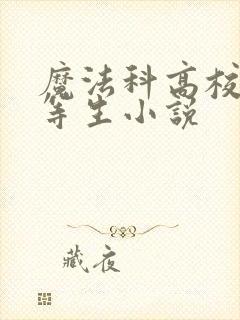 魔法科高校
等生小説
藏夜